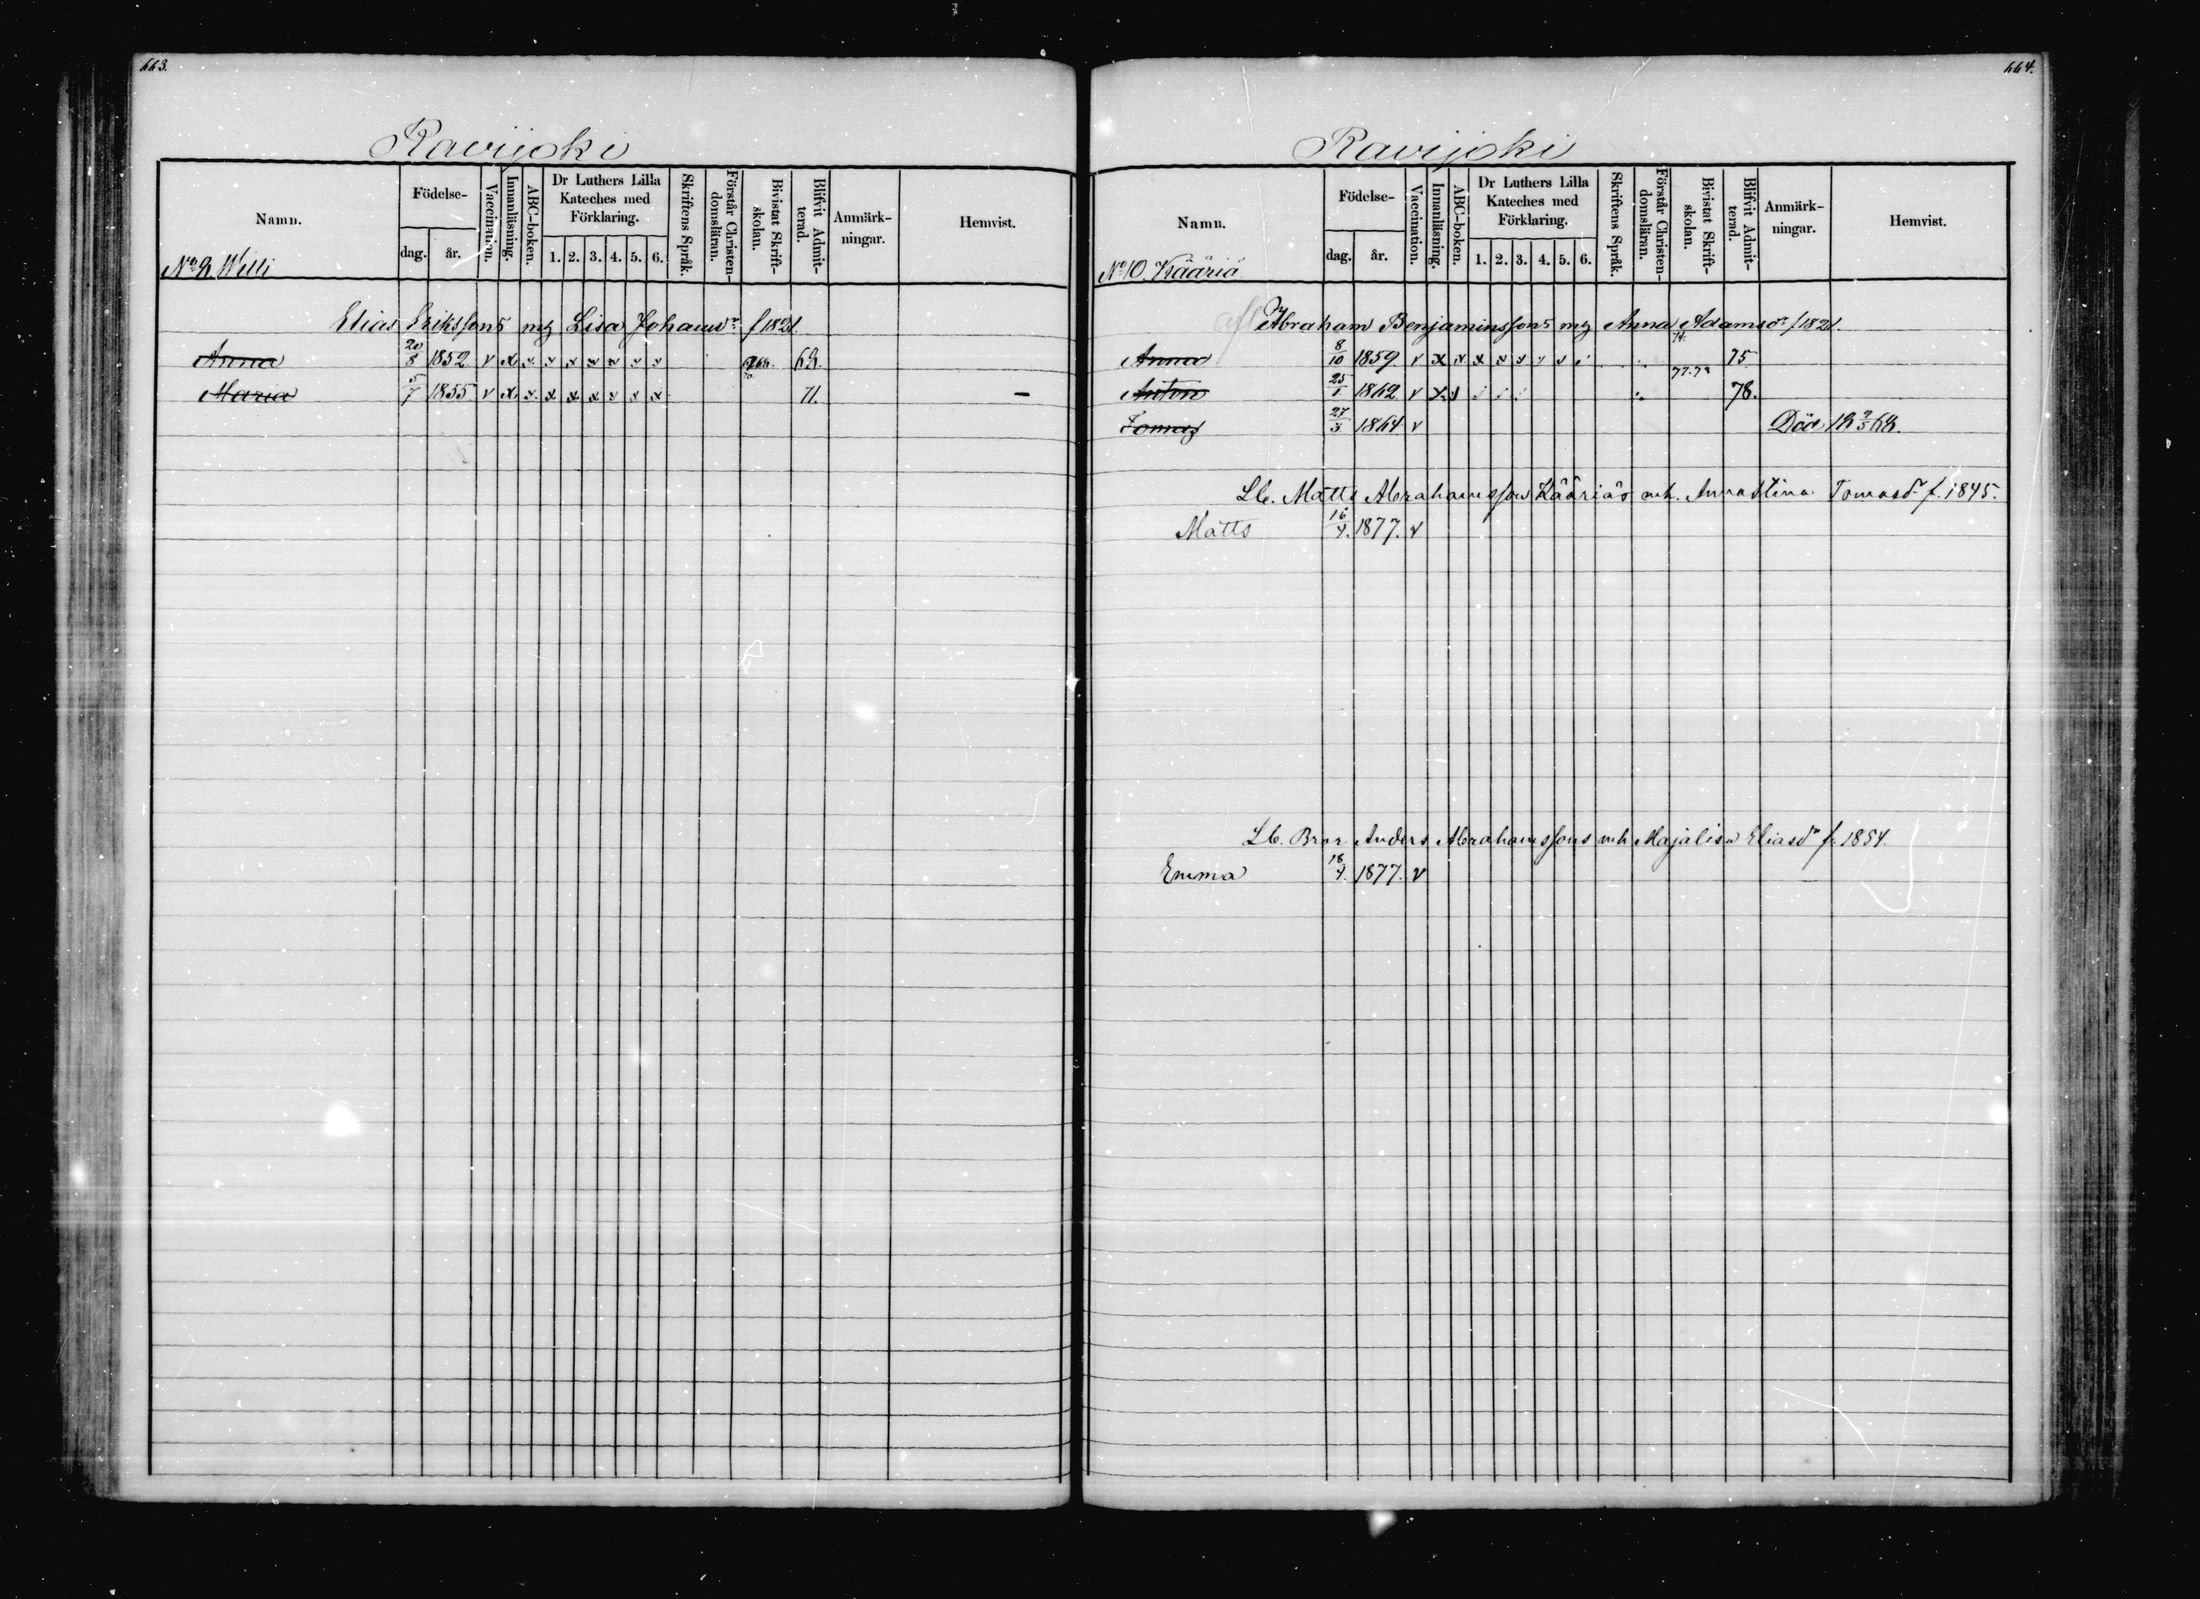 663.
Ravijoki
Namn. Födelse- dag. år. Vaccination. Innanläsning. ABC-boken. Dr Luthers Lilla Kateches med Förklaring. 1. 2. 3. 4. 5. 6. Skriftens Språk. Förstår Christen-domsläran. Bivistat Skrift-skolan. Blifvit Admit-terad. Anmärk-ningar. Hemvist.
Welli
Elias Erikssons mg Lisa Johansdr f 1821.
Anna 20/8 1852 v x x x x x x x x 68.
Maria 5/7 1855 v x x x x x x x x 71. –
664.
Ravijoki
Namn. Födelse- dag. år. Vaccination. Innanläsning. ABC-boken. Dr Luthers Lilla Kateches med Förklaring. 1. 2. 3. 4. 5. 6. Skriftens Språk. Förstår Christen-domsläran. Bivistat Skrift-skolan. Blifvit Admit-terad. Anmärk-ningar. Hemvist.
No 10. Kääriä
afl Abraham Benjaminssons mg Anna Adamsdr f 1821.
Anna 8/10 1859 v x x x x x 75
Anton 25/1 1862 v x x 78.
Tomas 27/3 1864 v Död
Lb. Matts Abrahamssons Kääriäs mh. Annastina Tomasdr f. 1845.
Matts 16/4. 1877. v
Lb. Bror Anders Abrahamssons mh Majalisa Eliasdr f. 1854.
Emma 18/4. 1877. v